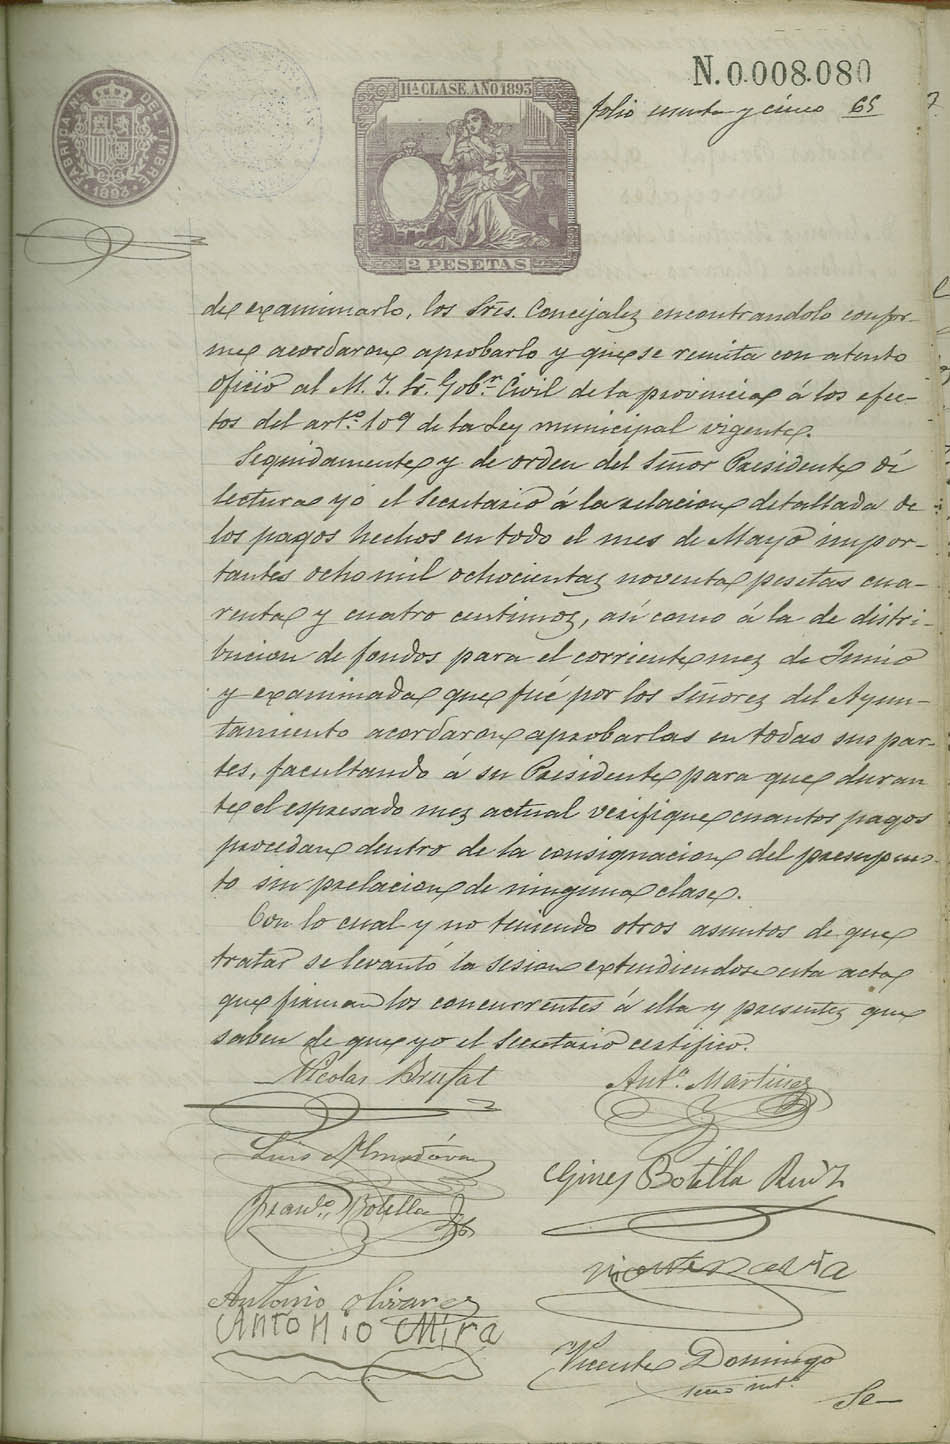 N.0.008.080
FABRICA NL. DEL TIMBRE
1893
11ª CLASE. AÑO 1893
2 PESETAS
folio sesenta y cinco 65
de examinarlo, los Sres. Concejales encontrandolo confor-
me acordaron aprobarlo y que se remita con atento
oficio al M. I. Sr. Gobr. Civil de la provincia á los efec-
tos del arto. 109 de la Ley municipal vigente.
Seguidamente y de orden del Señor Presidente dí
lectura yo el Secretario á la relacion detallada de
los pagos hechos en todo el mes de Mayo impor-
tantes ocho mil ochocientas noventa pesetas cua-
renta y cuatro centimos, así como á la de distri-
bucion de fondos para el corriente mes de Junio
y examinada que fué por los Señores del Ayun-
tamiento acordaron aprobarlas en todas sus par-
tes, facultando á su Presidente para que duran
te el espresado mes actual verifique cuantos pagos
procedan dentro de la consignacion del presupues-
to sin prelacion de ninguna clase.
Con lo cual y no teniendo otros asuntos de que
tratar se levantó la sesion extendiendose esta acta
que firman los concurrentes á ella y presentes que
saben de que yo el Secretario certifico.
Nicolas Brufal
Anto. Martinez
Luis Almodóvar
Gines Botella Ruiz
Franco. Botella
Vicente
Antonio Olivares
Antonio Mira
Vicente Domingo
Srio intº.
Se